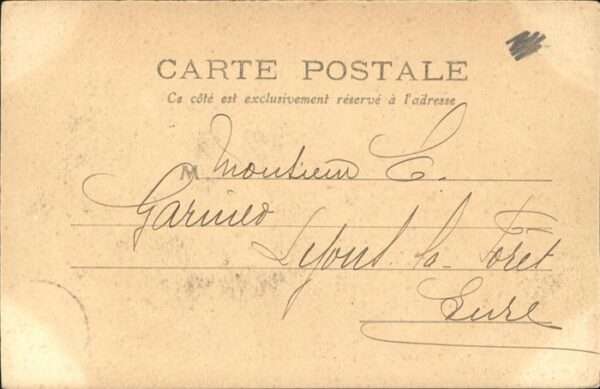 CARTE POSTALE
Ce côté est exclusivement réservé à l'adresse
M Monsieur C.
Garnier
Lyons la Forêt
Eure